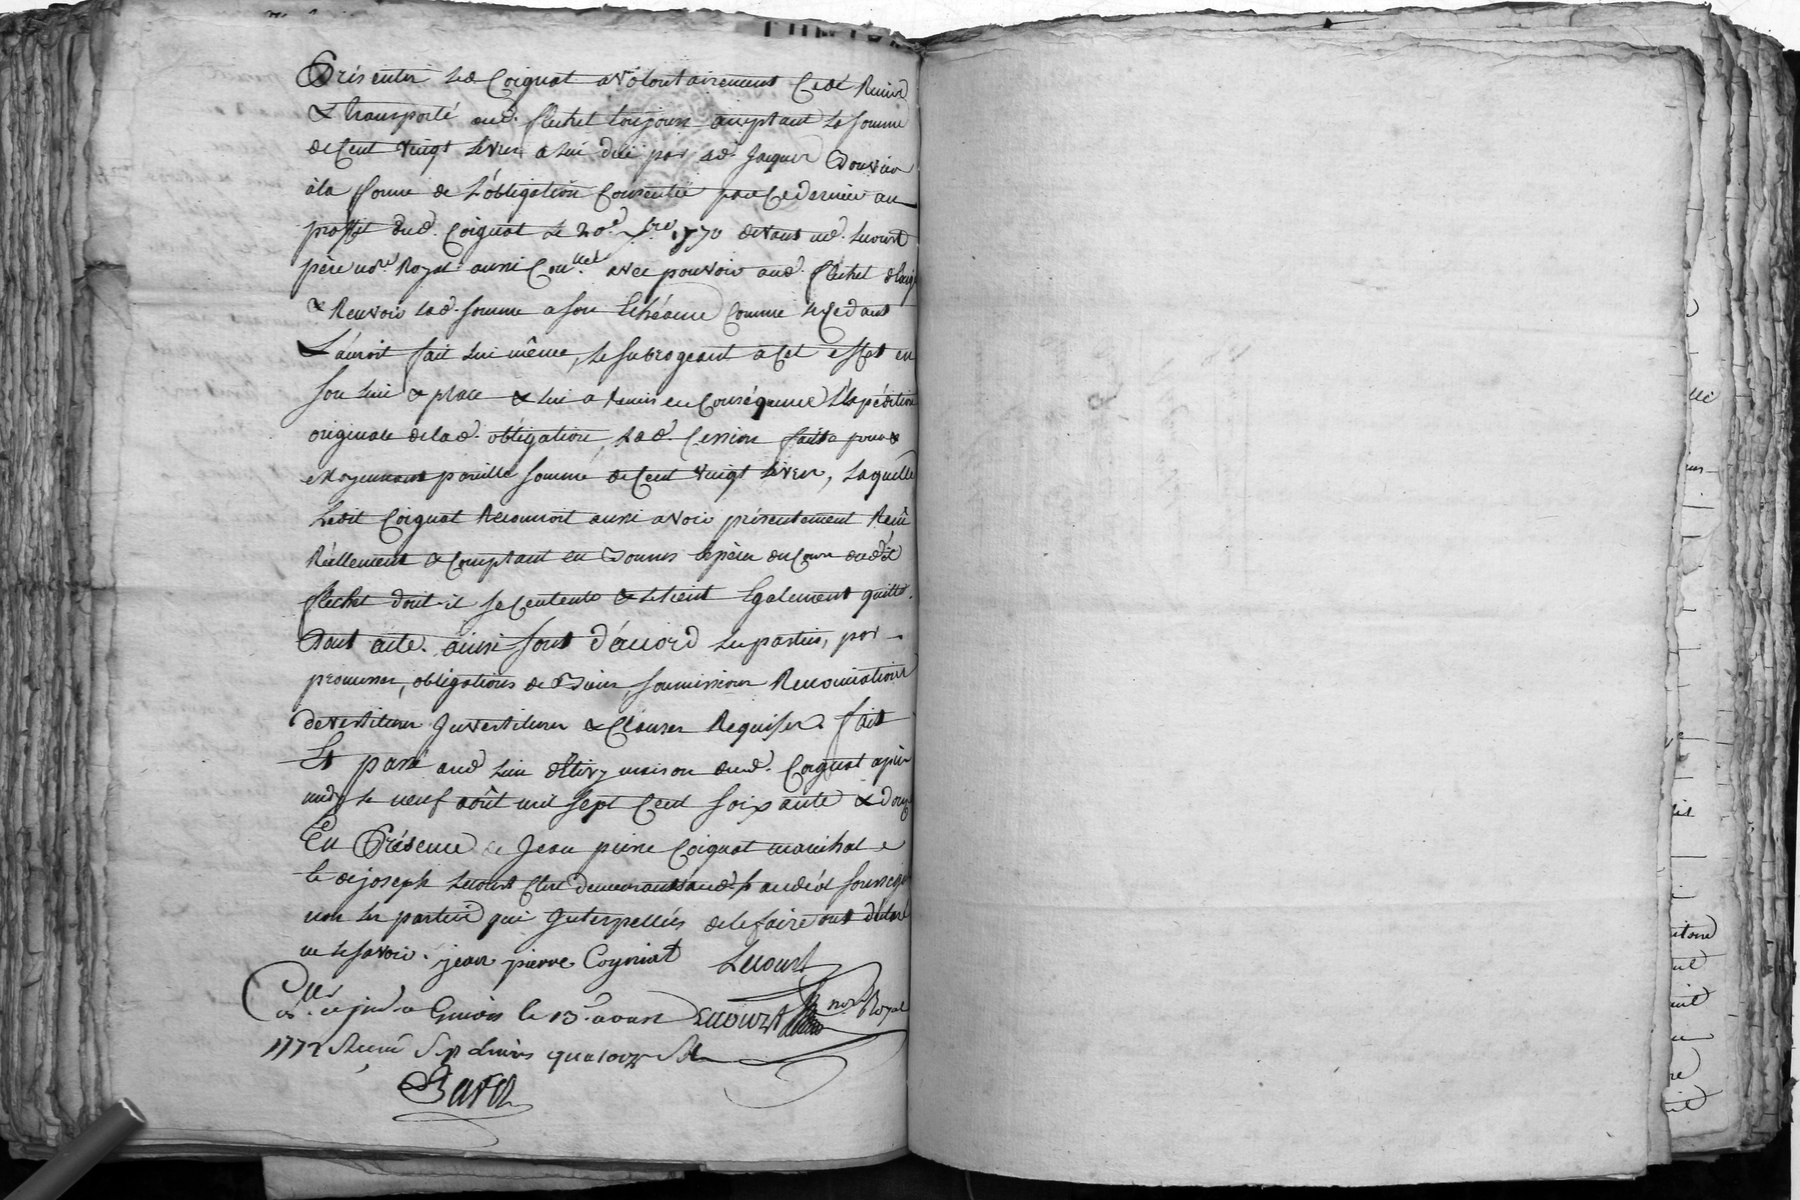 Présentes led Coignat a volontairement Cedé Remis
& transporté aud. flechet toujours acceptant la somme
de Cent vingt Livres a lui düe par led. Jacques Bouvier
à la forme de L'obligation Consentie par Ce dernier au
proffit dud. Coignat le 20e. 7bre. 1770 devant md. Lecourt
père nore. Royal aussi Conllée. avec pouvoir aud. flechet d'exiger
& Recevoir lad. somme a son Echéance Comme le Cedant
L'auroit fait lui même, le subrogeant a Cet effet en
son lieu & place & lui a remis en Conséquence L'éxpédition
originale de lad. obligation, lad. Cession faite pour &
Moyennant pareille somme de Cent vingt Livres, Laquelle
Ledit Coignat Reconnoit aussi avoir présentement Reçu
Réellement & Comptant en Bonnes Espèces du Cours dudit
flechet dont il se Contente & le tient Egalement quitte.
Dont acte. ainsi sont d'accord les parties, par
promesses, obligations de Biens, soumissions Renonciations
devestitures Investitures & Clauses Requises. fait
Et passé aud lieu maison dud. Coignat après
midy le neuf août mil sept Cent soixante & douze
En Présence de Jean pierre Coignat maréchal
& de joseph Lecourt Clerc demeurants soussignés
non les parties qui Interpellées de le faire ont déclaré
ne le savoir. jean pierre Coyniat Lecourt
Conllé. ce jour a le 13. aoust Lecourt nore. Royal
1772 Reçu sols